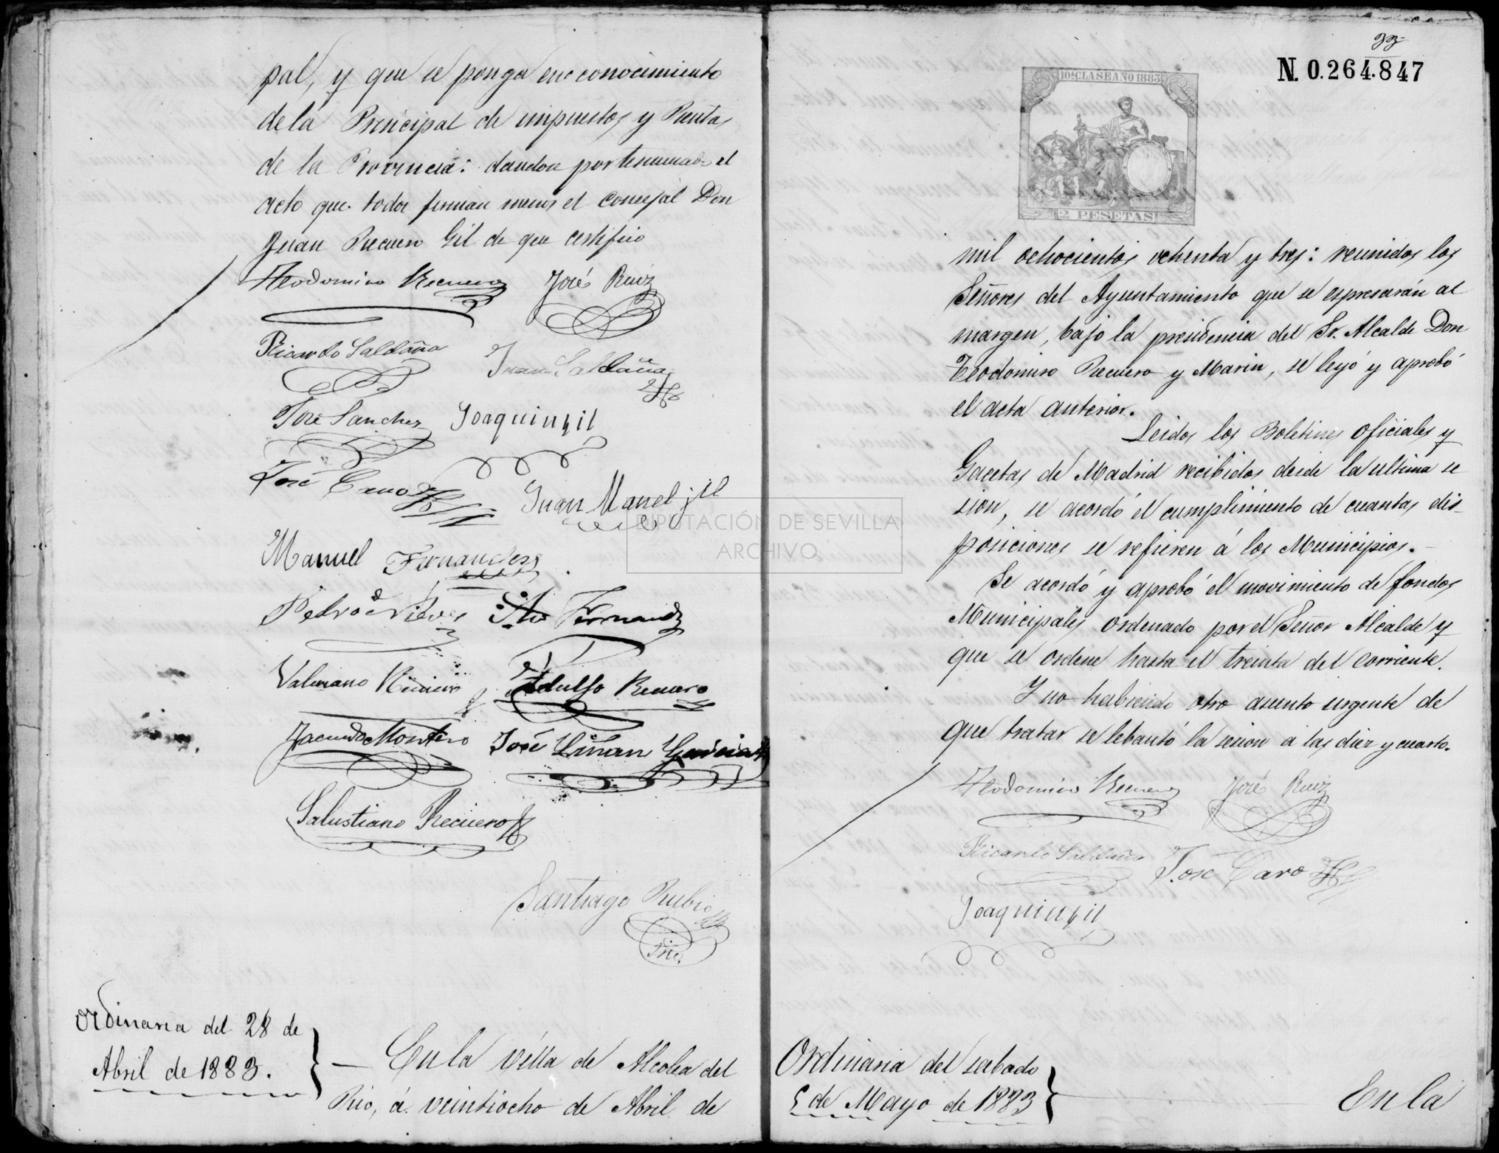 pal, y que se ponga en conocimiento
de la Principal de impuestos y Rentas
de la Provincia: dandose por terminado el
acto que todos firman menos el consejal Don
Juan Recuero Gil de que certifico
Teodomiro Recuero José Ruiz
Ricardo Saldaña Juan Saldaña
José Sanchez Joaquin gil
José Caro Juan Manel jil
Manuel Fernandez
Pedro Fernandz
Valeriano Romero Adulfo Recuero
Jacundo Montero José Liñan Garcia
Salustiano Recuero
Santiago Rubio
Srio.
ordinaria del 28 de
Abril de 1883.
En la villa de Alcolea del
Rio, á veintiocho de Abril de
33
N. 0.264.847
10ª CLASE AÑO 1883
2 PESETAS
mil ochocientos ochenta y tres: reunidos los
Señores del Ayuntamiento que se espresarán al
margen, bajo la presidencia del Sr. Alcalde Don
Teodomiro Recuero y Marin, se leyó y aprobó
el acta anterior.
Leidos los Boletines oficiales y
Gacetas de Madrid recibidos desde la ultima se
sion, se acordó el cumplimiento de cuantas dis-
posiciones se refieren á los Municipios.-
Se acordó y aprobó el movimiento de fondos
Municipales ordenado por el Señor Alcalde y
que se ordene hasta el treinta del corriente.
Y no habiendo otro asunto urgente de
que tratar se lebantó la sesion á las diez y cuarto.
Teodomiro Recuero José Ruiz
Ricardo Saldaña José Caro
Joaquin gil
Ordinaria del sabado
5 de Mayo de 1883
En la
DIPUTACIÓN DE SEVILLA
ARCHIVO